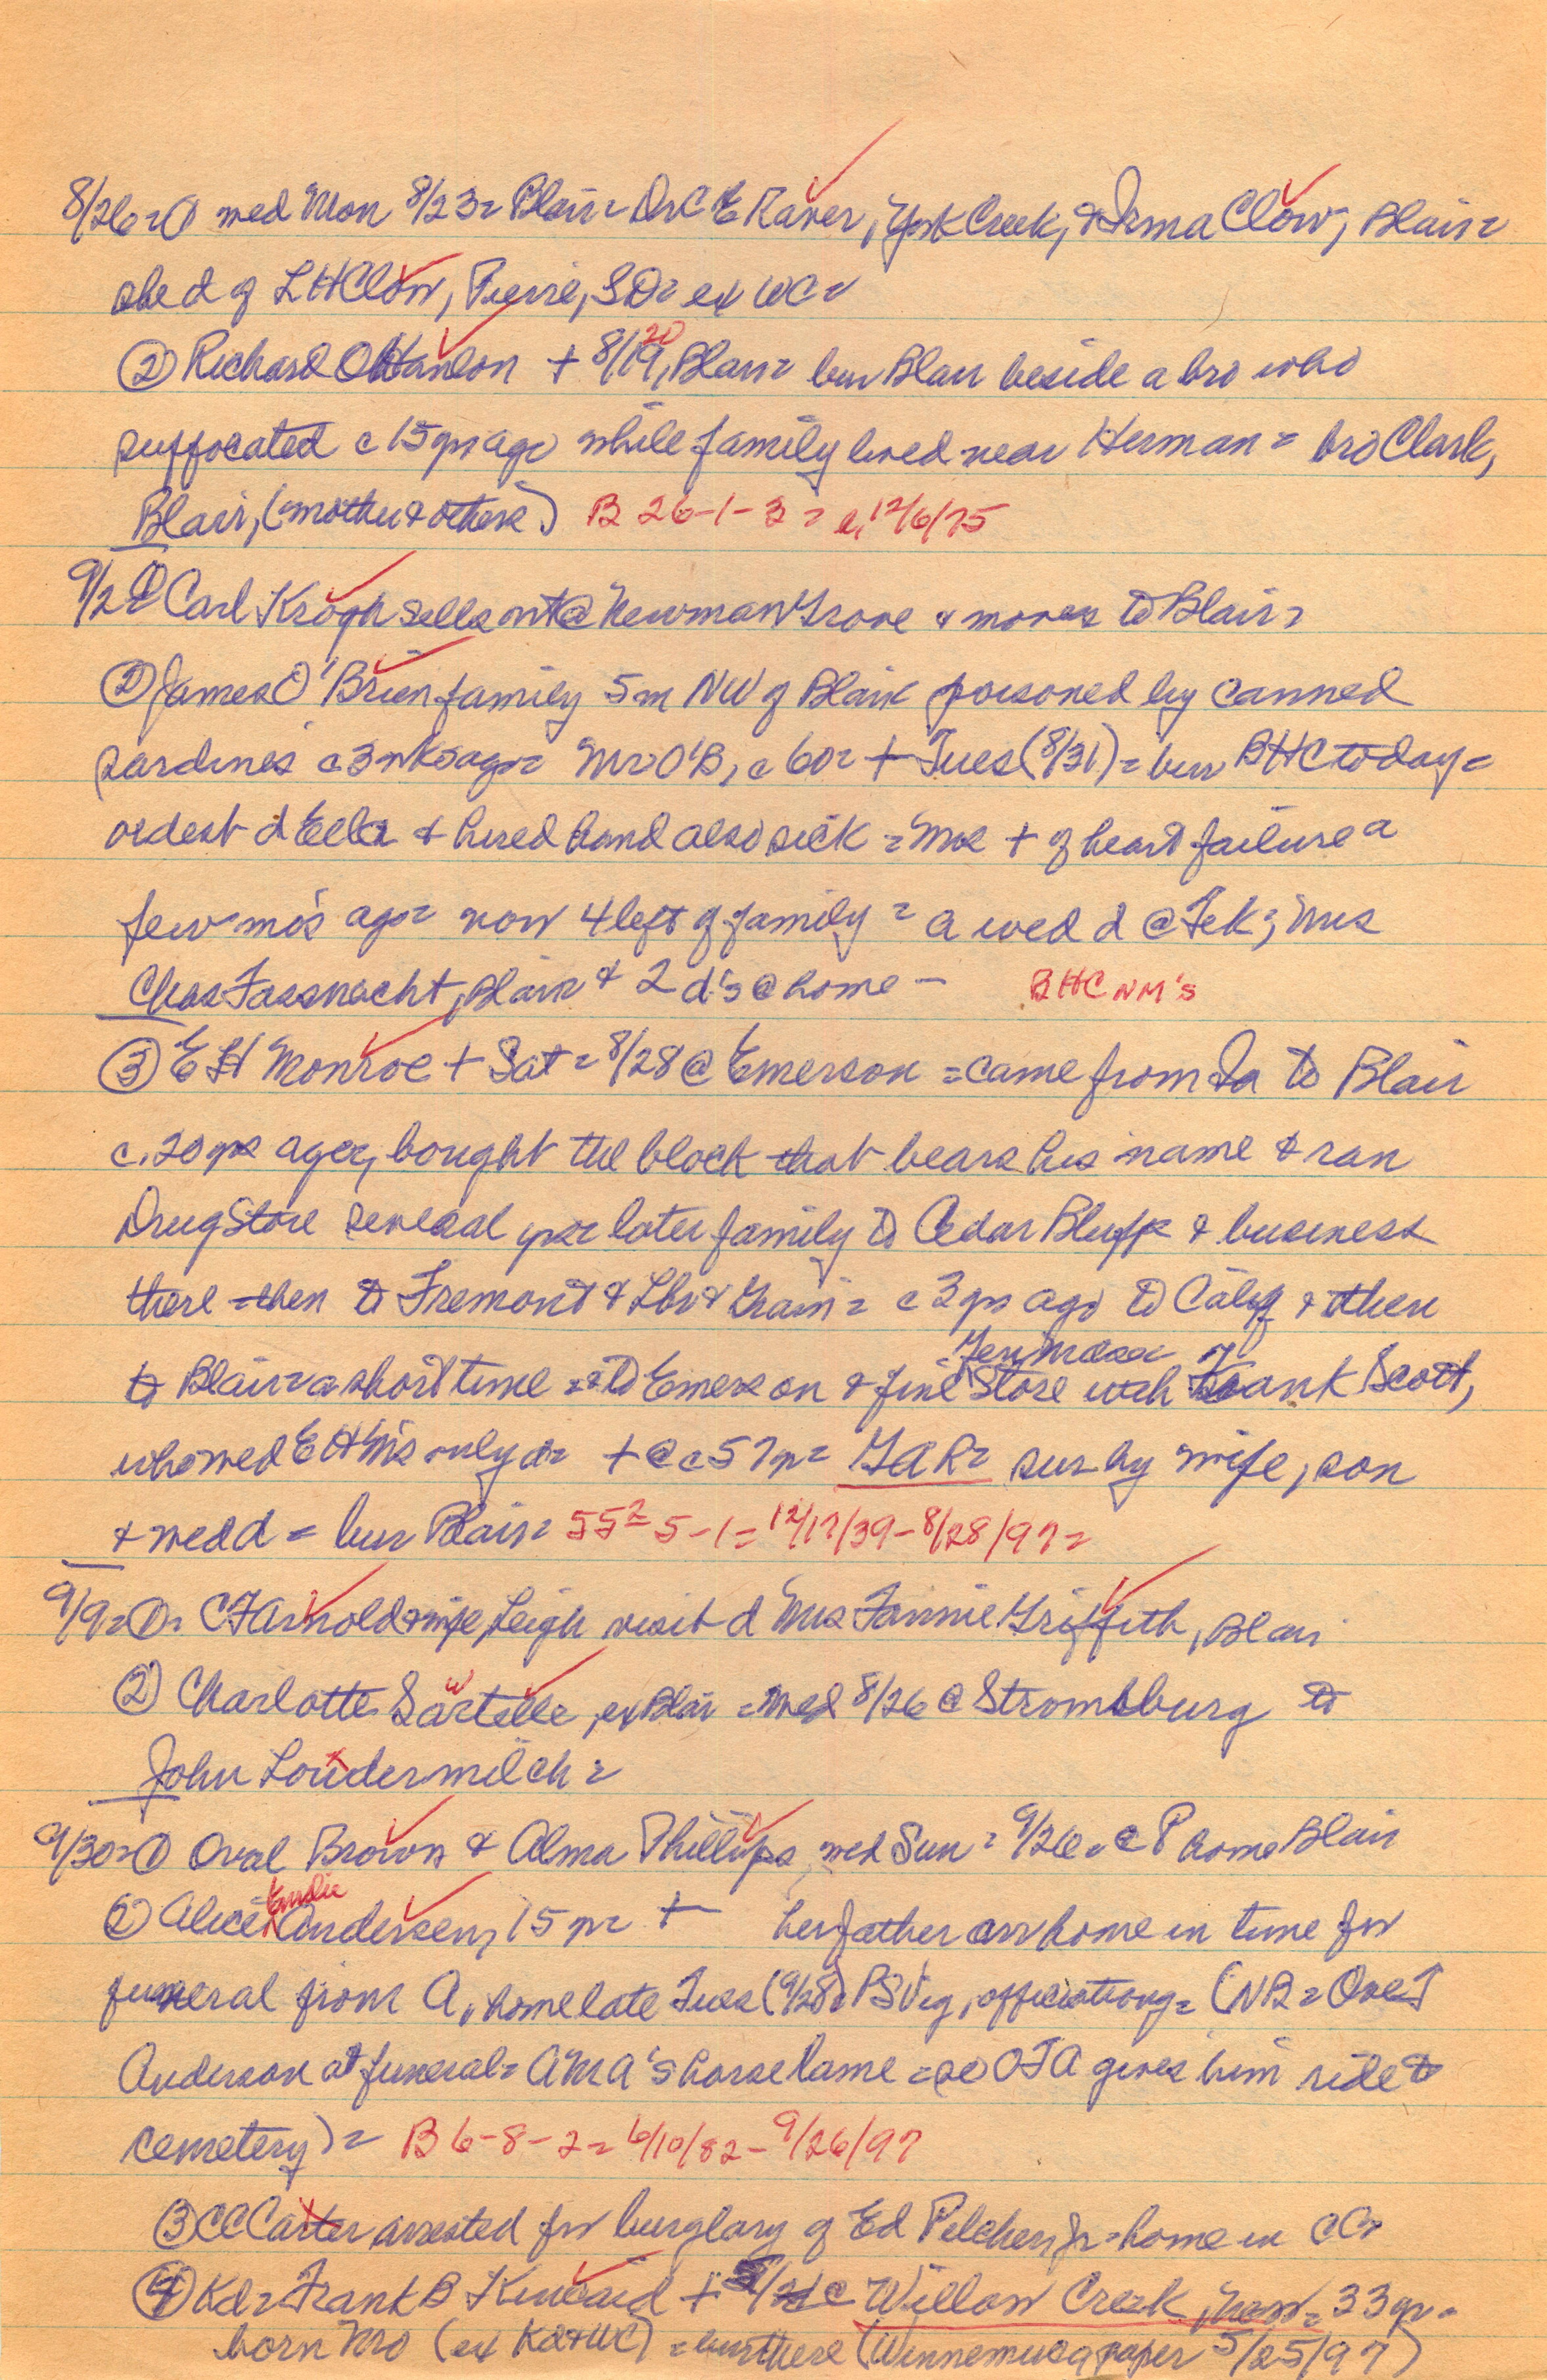 8/26 = ① wed Mon 8/23 = Blair = Dr C E Raver, York Creek, & Irma Clow, Blair =
she d of L H Clow, Pierre, SD = ex WC =
② Richard O'Hanlon + 8/19, 20 Blair = bur Blair beside a bro who
suffocated c 15 yrs ago while family lived near Herman = bro Clark,
Blair, (mother & others) B 26-1-3 = 12/6/75
9/2 ① Carl Krogh sells out @ Newman Grove & moves to Blair =
② James O'Brien family 5 m NW of Blair poisoned by canned
sardines c 3 wks ago = Mr O'B, c 60 = + Tues (8/31) = bur BHC today =
oldest d Ella & hired hand also sick = Mrs + of heart failure a
few mo's ago = now 4 left of family = a wed d @ Tek; Mrs
Chas Fassnacht, Blair & 2 d's @ home – BHC NM's
③ E H Monroe + Sat = 8/28 @ Emerson = came from Ia to Blair
c. 20 yrs ago, bought the block that bears his name & ran
Drug Store several yrs = later family to Cedar Bluffs & business
there - then to Fremont & Lbr & Grain = c 3 yrs ago to Calif & then
to Blair = a short time = & to Emerson & fine Gen Mdse Store with Frank Scott,
who wed E H M's only d = + @ c 57 yr = GAR = sur by wife, son
& wed d = bur Blair = 55 2= 5-1 = 12/17/39 - 8/28/97 =
9/9 = ① = C F Arnold & wife, Leigh visit d Mrs Fannie Griffith, Blair
② Charlotte Sartelle, w ex Blair = wed 8/26 @ Stromsburg to
John Loudermilch =
9/30 = ① Oval Brown & Alma Phillips, wed Sun = 9/26 = @ P home Blair
② Alice Emelie Andersen, 15 yr = + her father arr home in time for
funeral from A, home late Tues (9/28) = PS Vig, officiating = (NB = Ove T
Anderson at funeral = AMA's horse lame = so OTA gives him ride to
cemetery) = B 6-8-2 = 6/10/82 - 9/26/97
③ CC Carter arrested for burglary of Ed Pilcher, Jr = home in CC =
④ Kd = Frank B Kincaid + @ Willow Creek, = 33 yr =
born Mo (ex Kd & WC) = bur there (Winnemucca paper 5/25/97)